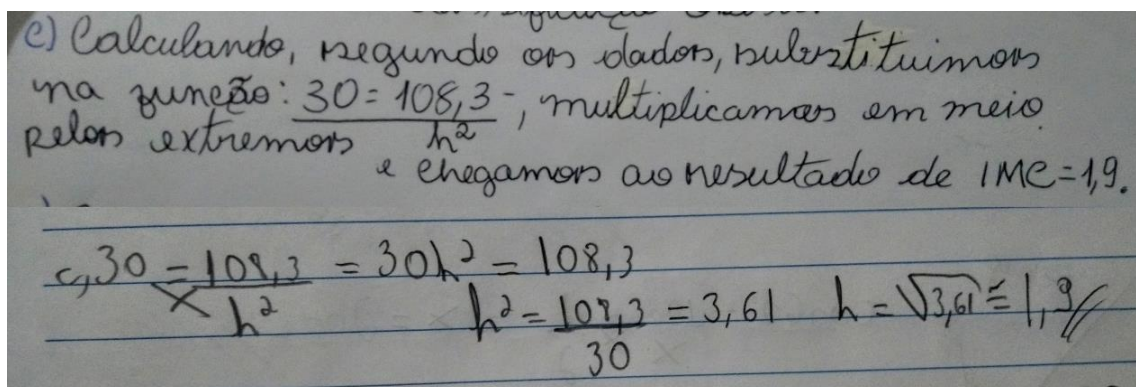 c) Calculando, segundo os dados, substituimos
na função: 30 = 108,3 / h², multiplicamos em meio
pelos extremos
e chegamos ao resultado de IMC = 1,9.
c, 30 = 108,3 / h² = 30h² = 108,3
h² = 108,3 / 30 = 3,61 h = √3,61 ≅ 1,9//